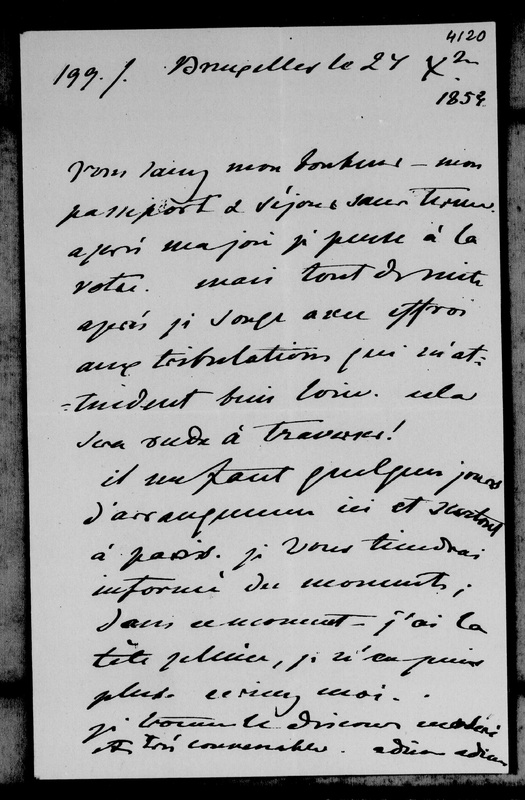 4120
199. f. Bruxelles le 24 Xbre
1859
vous savez mon bonheur – mon
passeport & séjour sans terme.
après ma joie je pense à la
votre. mais tout de suite
après je songe avec effroi
aux tribulations qui m'at-
-tendent bien loin. cela
sera rude à traverser!
il me faut quelques jours
d'arrangemens ici et surtout
à paris. je vous tiendrai
informé des moments;
dans ce moment – j'ai la
tête pleine, je n'en puis
plus. ecrivez moi.
je trouve le discours
très convenable. adieu adieu